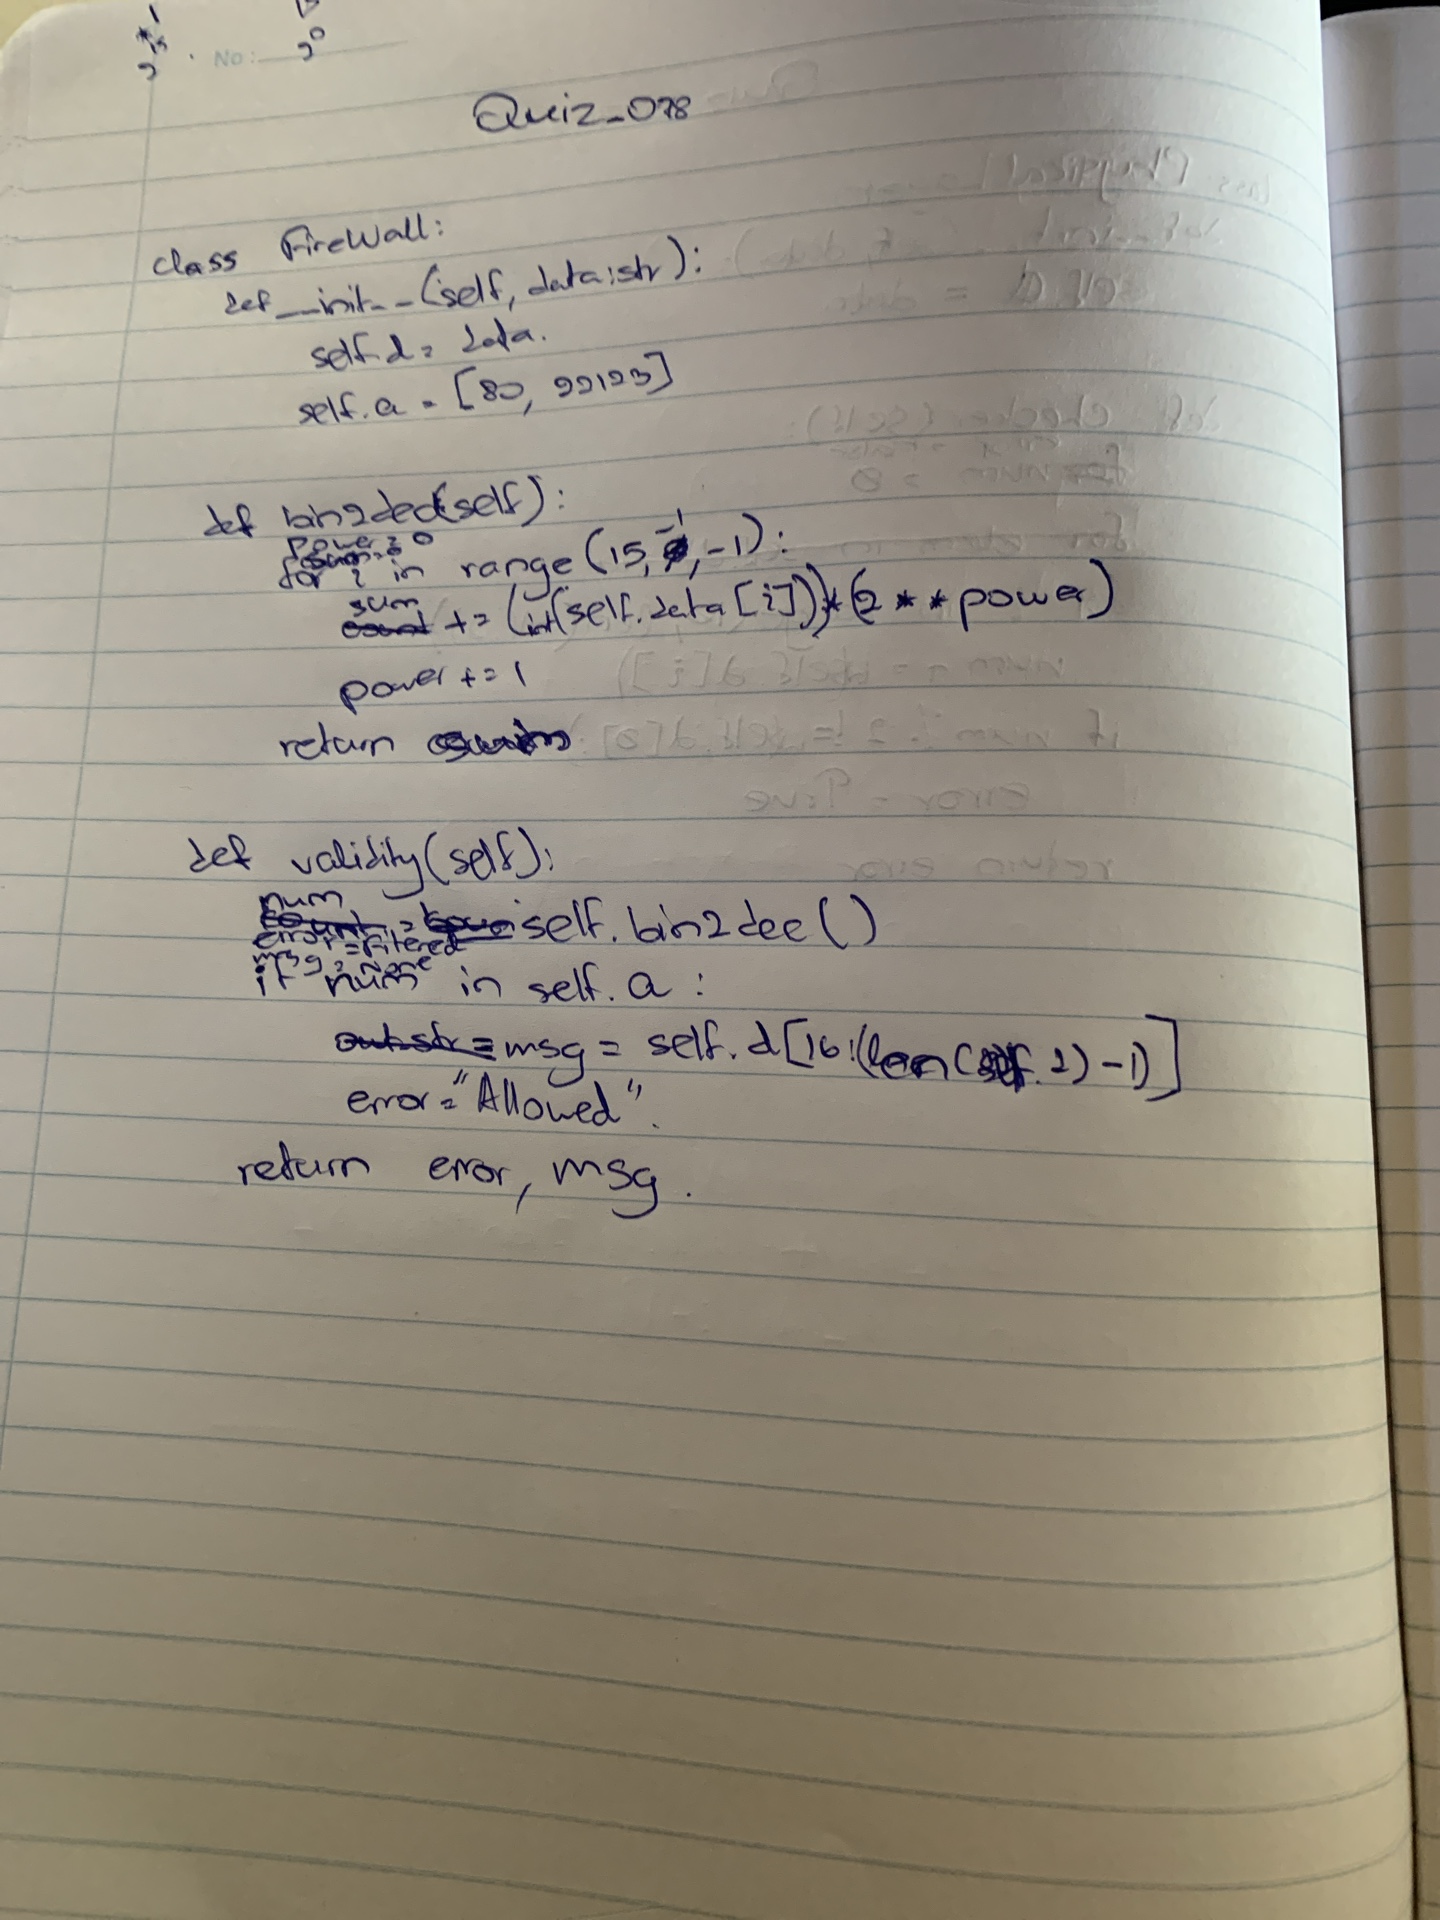 No:
2^0
Quiz_078
class FireWall:
def __init__(self, data:str):
self.d = data.
self.a = [80, 22123]
def bin2dec(self):
power = 0
sum = 0
for i in range(15, -1, -1):
sum += (int(self.data[i]))*(2**power)
power += 1
return sum
def validity(self):
num = self.bin2dec()
error = Filtered
msg = None
if num in self.a :
msg = self.d[16:(len(self.d)-1)]
error = "Allowed".
return error, msg.